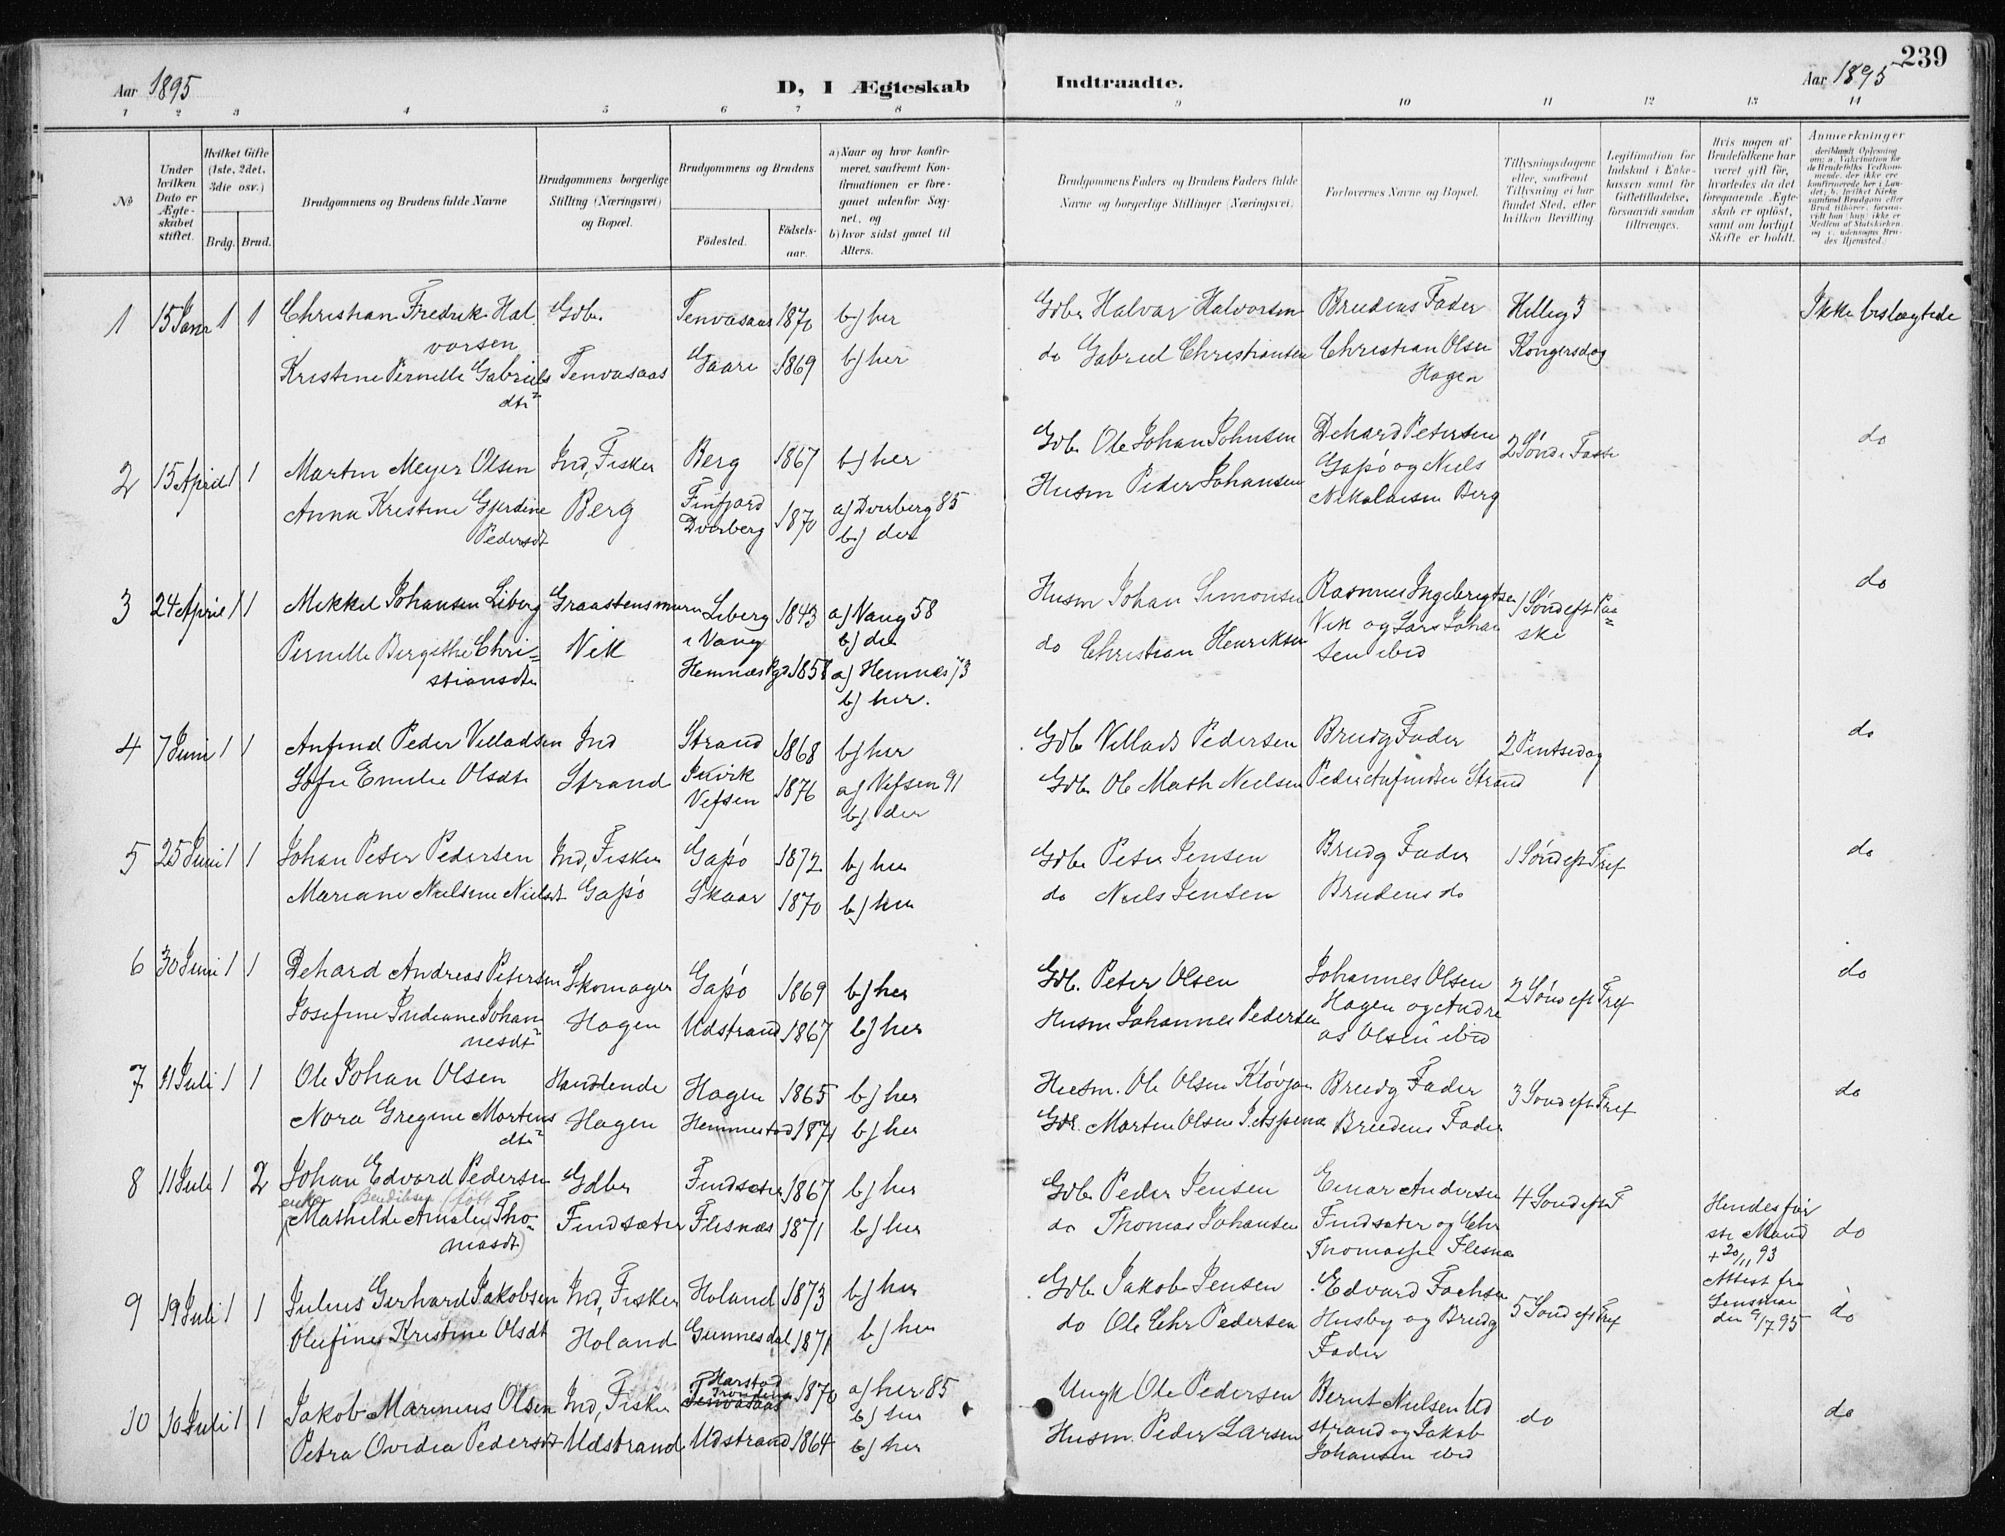 239
Aar 1895
D, I Ægteskab Indtraadte.
Aar 1895
1 2 3 4 5 6 7 8 9 10 11 12 13 14
No
Under hvilken Dato er Ægteskabet stiftet.
Hvilket Gifte (1ste, 2det, 3die osv.)
Brdg. Brud.
Brudgommens og Brudens fulde Navne
Brudgommens borgerlige Stilling (Næringsvei) og Bopæl.
Brudgommens og Brudens
Födested.
Födsels-aar.
a) Naar og hvor konfirmeret, saafremt Konfirmationen er foregaaet udenfor Sognet, og
b) hvor sidst gaaet til Alters.
Brudgommens Faders og Brudens Faders fulde Navne og borgerlige Stillinger (Næringsvei).
Forlovernes Navne og Bopæl.
Tillysningsdagene eller, saafremt Tillysning ei har fundet Sted, efter hvilken Bevilling
Legitimation for Indskud i Enkekassen samt for Giftetilladelse, forsaavidt saadan tiltrænges.
Hvis nogen af Brudefolkene har været gift för, hvorledes da det foregaaende Ægteskab er oplöst, samt om lovligt Skifte er holdt.
Anmerkninger
1 15 Janr 1 1 Christian Fredrik Hal- Gdbr. Tenvasaas 1870 b) her Gdbr Halvar Halvorsen Brudens Fader Hellig 3 Ikke beslægtede
vorsen
Kristine Pernelle Gabriels Tenvasaas Gaare 1869 b) her do Gabriel Christiansen Christian Olsen Kongersdag
dtr Hagen
2 15 April 1 1 Martin Meyer Olsen Ind, Fisker Berg 1867 b) her Gdbr Ole Johan Johnsen Dehard Petersen 2 Sönd i Faste do
Anna Kristine Gjerdine Berg Finfjord 1870 a) Dverberg 85 Husm Peder Johansen Gapö og Niels
Pedersdt Dverberg b) der Nikolaisen Berg
3 24 April 1 1 Mekkel Johansen Liberg Graastensmurer Liberg 1843 a) Vang 58 Husm Johan Simonsen Rasmus Ingebrigtsen 1 Sönd eft Paa- do
i Vang b) der Vik og Lars Johan ske
Pernelle Birgithe Chri- Vik Hemnæs Pgd 1858 a) Hemnæs 73 do Christian Henriksen sen ibid
stiansdtr b) her.
4 7 Juni 1 1 Anfind Peder Villadsen Ind Strand 1868 b) her Gdbr Villads Pedersen Brudg Fader 2 Pintsedag do
Sofie Emilie Olsdtr Strand Indvik 1876 a) Vefsen 91 Gdbr Ole Math Nielsen Peder Anfindsen Strand
Vefsen b) der
5 25 Juni 1 1 Johan Peter Pedersen Ind, Fisker Gapö 1872 b) her Gdbr Peter Jensen Brudg Fader 1 Sönd eft Tref do
Mariane Nielsine Nielsdt Gapö Skaar 1870 b) her do Niels Jensen Brudens do
6 30 Juni 1 1 Dehard Andreas Petersen Skomager Gapö 1869 b) her Gdb. Peter Olsen Johannes Olsen 2 Sönd eft Tref do
Josefine Indiane Johan- Hagen Udstrand 1867 b) her Husm Johannes Pedersen Hagen og Andre
nesdtr as Olsen ibid
7 11 Juli 1 1 Ole Johan Olsen Handlende Hagen 1865 b) her Husm. Ole Olsen Klövjan Brudg Fader 3 Sönd eft Tref do
Nora Gregine Mortens Hagen Hemmestad 1871 b) her Gdr. Morten Olsen Brudens Fader
dtr
8 11 Juli 1 2 Johan Edvard Pedersen Gdbr Findsæter 1867 b) her Gdb Peder Jensen Einar Andersen 4 Sönd eft T Hendes för do
enke Bendiksen
(Mathilde Amalie Tho- Findsæter Flesnæs 1871 b) her do Thomas Johansen Findsæter og Chr ste Mand
masdt) Thomassen Flesnæs + 20/11 93
Attest fra
Lensman
den 9/7 95
9 19 Juli 1 1 Julius Gerhard Jakobsen Ind, Fisker Holand 1873 b) her Gdb Jakob Jensen Edvard Fochsen 5 Sönd eft Tref do
Olufine Kristine Olsdt Holand Gunnesdal 1871 b) her do Ole Chr Pedersen Husby og Brudg
Fader
10 10 Juli 1 1 Jakob Marinius Olsen Ind, Fisker Harstad Trondenæs 1870 a) her 85 Ungk Ole Pedersen Bernt Nielsen Ud do do
Tenvasaas b) her
Petra Ovidia Pedersdt Udstrand Udstrand 1864 b) her Husm. Peder Larsen strand og Jakob
Johansen ibid